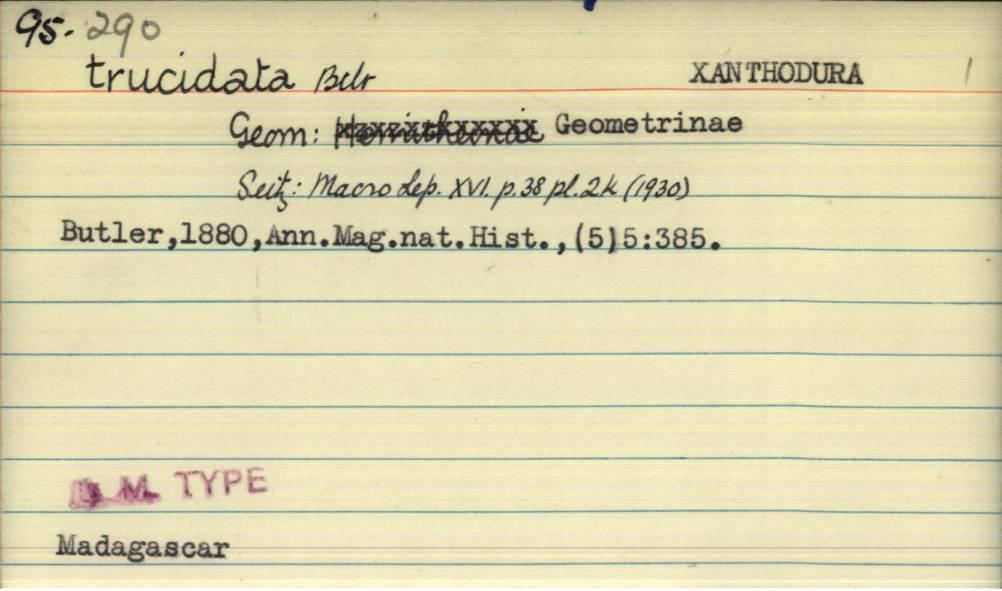 95. 290
trucidata Butr XANTHODURA 1
Geom: Geometrinae
Seitz: Macro Lep. XVI. p.38 pl.2k (1930)
Butler,1880,Ann.Mag.nat.Hist.,(5)5:385.
M. TYPE
Madagascar